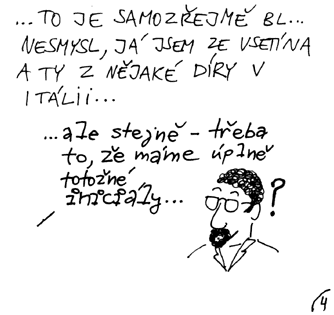 ...TO JE SAMOZŘEJMĚ BL...
NESMYSL, JÁ JSEM ZE VSETÍNA
A TY Z NĚJAKÉ DÍRY V
ITÁLII...
...ale stejně - třeba
to, že máme úplně
totožné
iniciály...
?
4